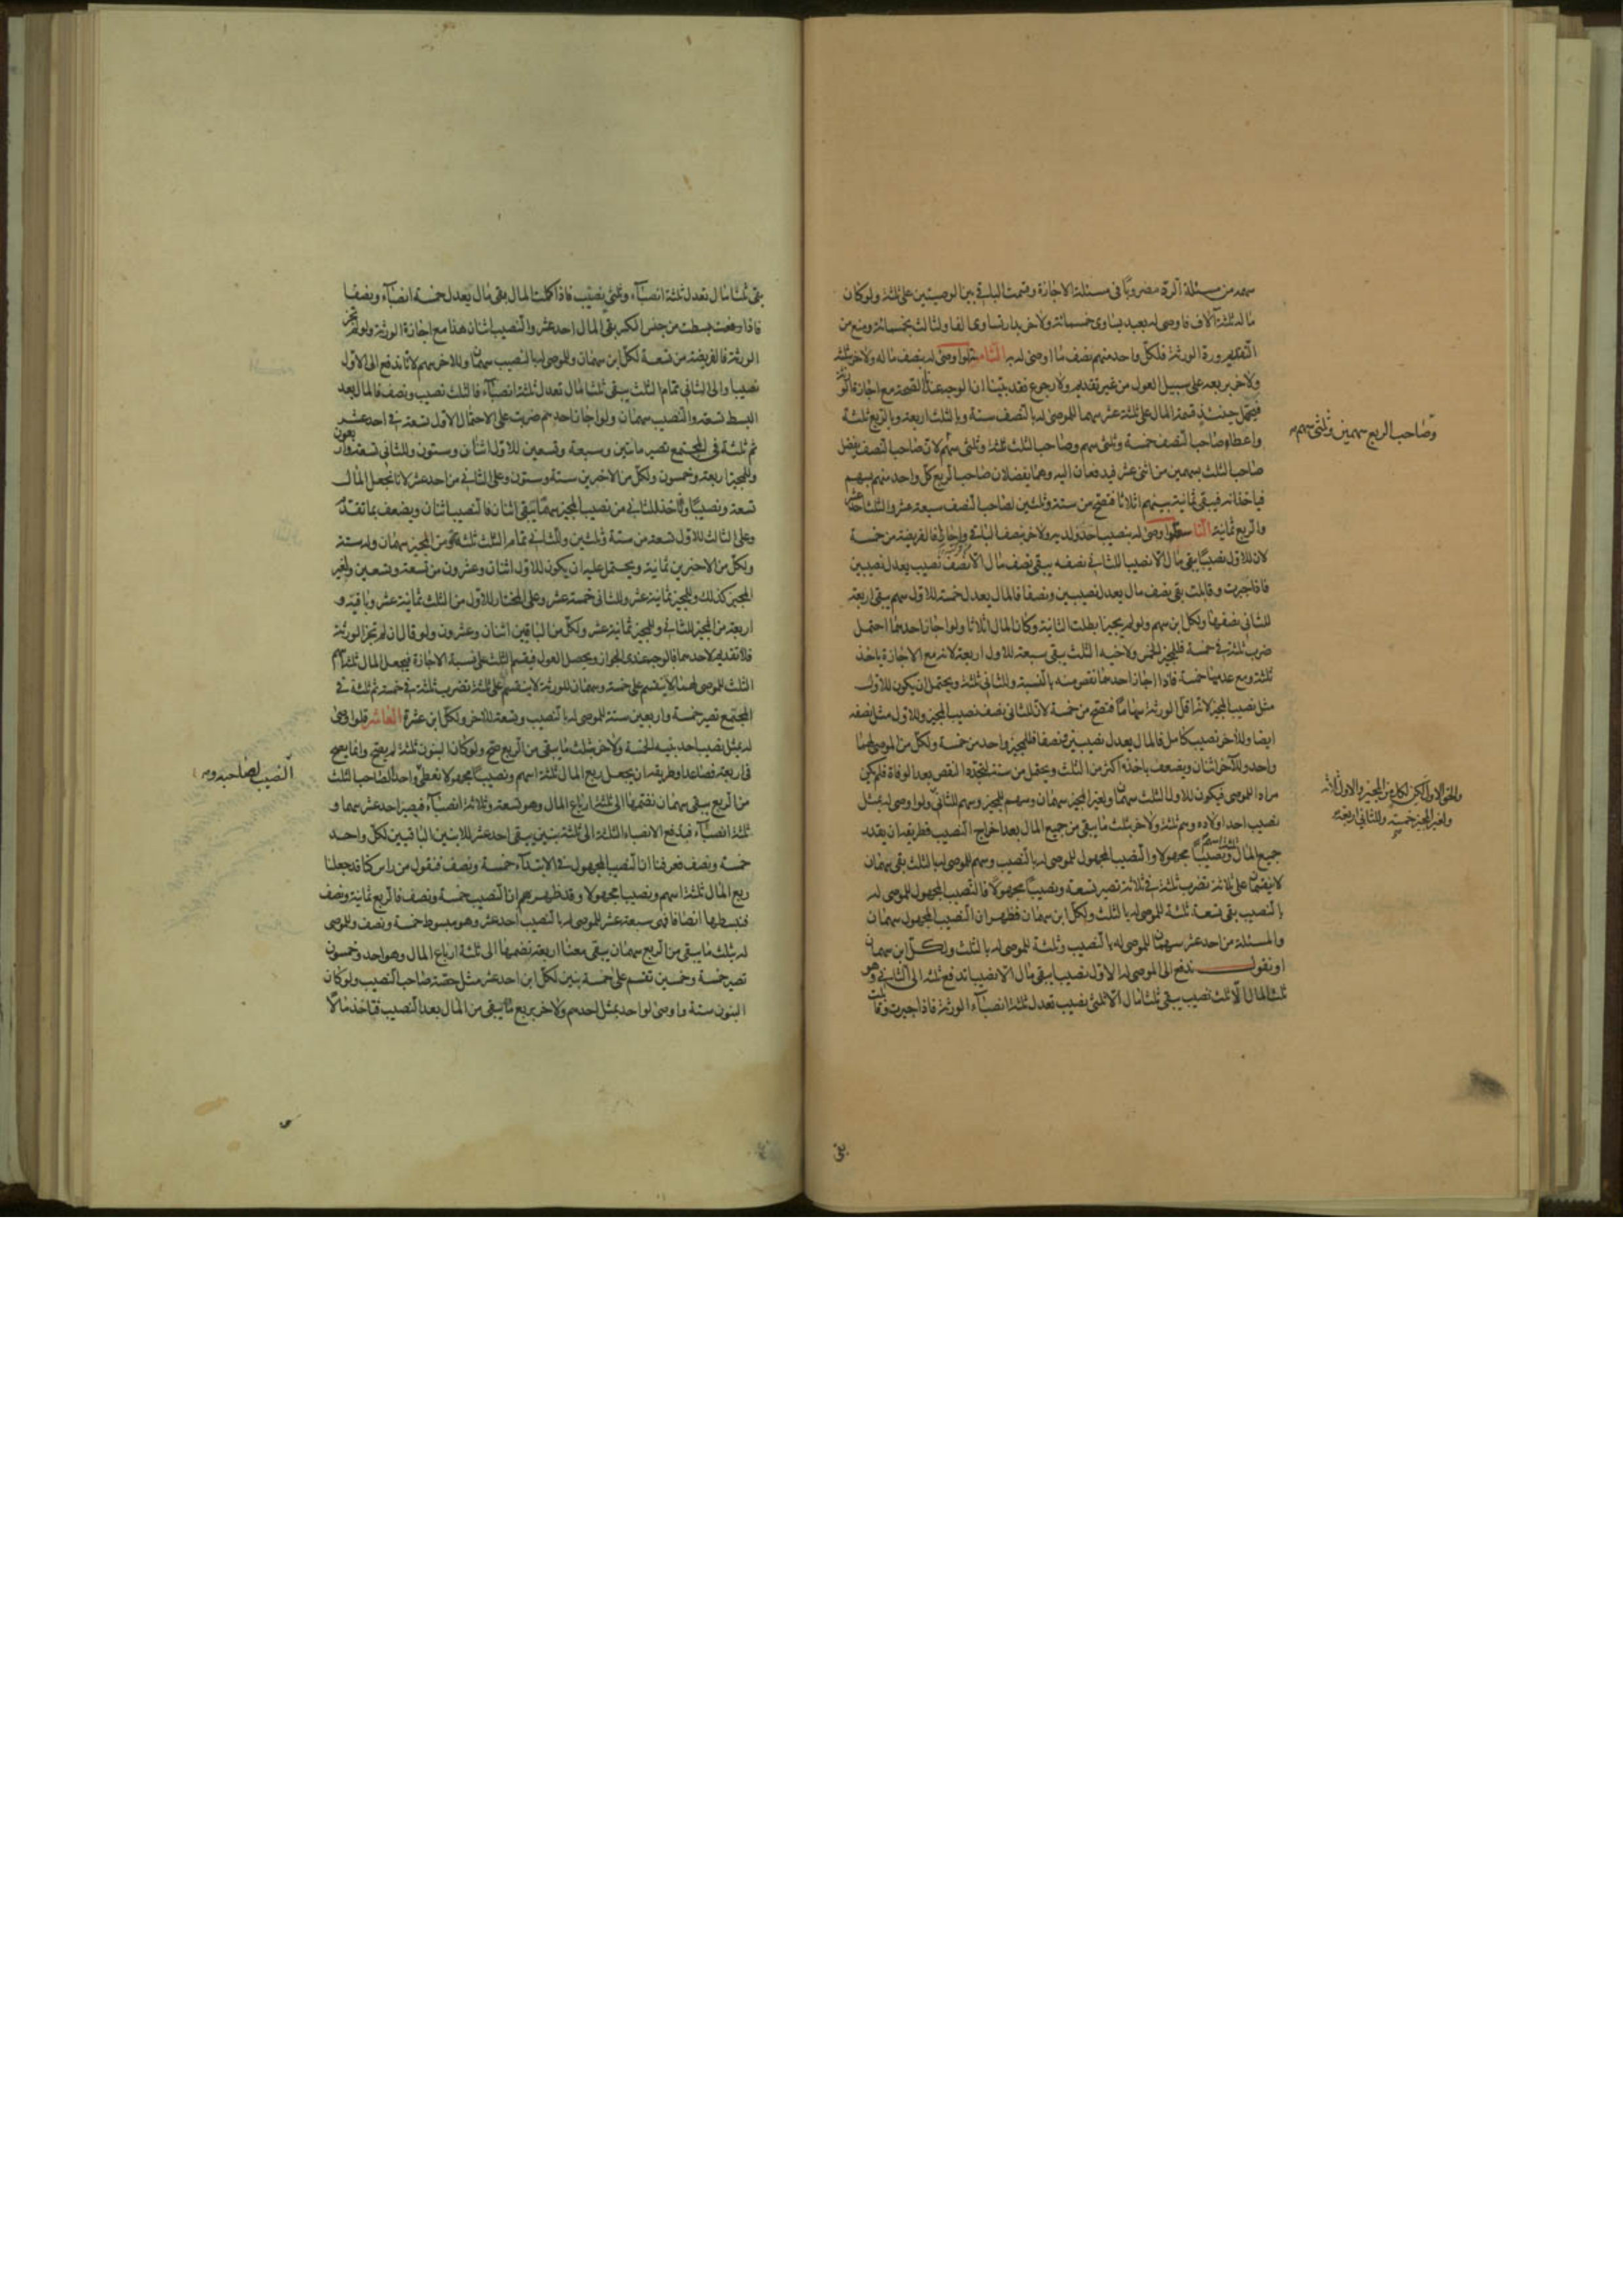 سهمه من مسئلة الرد مضروبا فى مسئلة الاجازة وقسمت الباقى بين الوصيتين على ثلثة ولو كان
ماله ثلثة آلاف فاوصى له بعبد يساوى خمسمائة ولاخر بدار تساوى الفا ولثالث بخمسمائة ومنع من
التقديم ورة الورثة فلكل واحد منهم نصف ما اوصى له به الثامن لو اوصى له بنصف ماله ولاخر بثلثه
ولاخر بربعه على سبيل العول من غير تقديم ولا رجوع فقد بينا ان الوجه عندنا الصحة مع اجازة الورثة
فيحتمل حينئذ قسمة المال على ثلثة عشر سهما للموصى له بالنصف ستة وبالثلث اربعة وبالربع ثلثة
واعطاء صاحب النصف خمسة وثلثى سهم وصاحب الثلث ثلثة وثلثى سهم لان صاحب النصف يفضل
وصاحب الربع سهمين وثلثى سهم
صاحب الثلث بسهمين من اثنى عشر فيدفعان اليه وهما يفضلان صاحب الربع كل واحد منهم بسهم
فياخذانه فيبقى ثمانية بينهم اثلاثا فتصح من ستة وثلثين لصاحب النصف سبعة عشر والثلث احد عشر
والربع ثمانية التاسع لو اوصى له بنصيب احد ولديه ولاخر بنصف الباقى واجازا فالفريضة من خمسة
لان للاول نصيبا يبقى مال الا نصيبا للثانى نصفه يبقى نصف مال الا نصف نصيب يعدل نصيبين
فاذا جبرت وقابلت بقى نصف مال يعدل نصيبين ونصفا فالمال يعدل خمسة للاول سهم يبقى اربعة
للثانى نصفها ولكل ابن سهم ولو لم يجيزا بطلت الثانية وكان المال اثلاثا ولو اجاز احدهما احتمل
ضرب ثلثة فى خمسة فللمجيز الخمس ولاخيه الثلث يبقى سبعة للاول اربعة لانه مع الاجازة ياخذ
ثلثة ومع عدمها خمسة فاذا اجاز احدهما نقص منه بالنسبة وللثانى ثلثة ويحتمل ان يكون للاول
مثل نصيب المجيز لانه اقل الورثة سهاما فتصح من خمسة لان للثانى نصف نصيب المجيز وللاول مثل نصفه
ايضا وللاخر نصيب كامل فالمال يعدل نصيبين ونصفا فللمجيز واحد من خمسة ولكل من الموصى لهما
واحد وللاخر اثنان ويضعف باخذه اكثر من الثلث ويحتمل من ستة لتجدد النقص بعد الوفاة فلم يكن
مرادا للموصى فيكون للاول الثلث سهمان ولغير المجيز سهمان وسهم للمجيز وسهم للثانى ولو اوصى له بمثل
نصيب احد اولاده وهم ثلثة ولاخر بثلث ما يبقى من جميع المال بعد اخراج النصيب فطريقه ان يقدر
جميع المال ثلثة اسهم ونصيبا مجهولا والنصيب المجهول للموصى له بالنصيب وسهم للموصى له بالثلث بقى سهمان
لا ينقسمان على ثلاثة تضرب ثلثة فى ثلاثة تصير تسعة ونصيبا مجهولا فالنصيب المجهول للموصى له
بالنصيب بقى تسعة ثلثة للموصى له بالثلث ولكل ابن سهمان فظهر ان النصيب المجهول سهمان
والمسئلة من احد عشر سهمان للموصى له بالنصيب وثلثة للموصى له بالثلث ولكل ابن سهمان
او نقول ندفع الى الموصى له الاول نصيبا يبقى مال الا نصيبا ندفع ثلثه الى الثانى وهو
ثلث المال الا ثلث نصيب يبقى ثلثا مال الا ثلثى نصيب تعدل ثلثة انصباء الورثة فاذا جبرت وقابلت
بقى
بقى ثلثا مال تعدل ثلثة انصباء وثلثى نصيب فاذا كملت المال بقى مال يعدل خمسة انصباء ونصفا
فاذا رفعت بسطت من جنس الكسر بقى المال احد عشر والنصيب اثنان هذا مع اجازة الورثة ولو لم تجز
الورثة فالفريضة من تسعة لكل ابن سهمان وللموصى له بالنصيب سهمان وللاخر سهم لانا ندفع الى الاول
نصيبا والى الثانى تمام الثلث يبقى ثلثا مال تعدل ثلثة انصباء فالثلث نصيب ونصف فالمال بعد
البسط تسعة والنصيب سهمان ولو اجاز احدهم ضربت على الاحتمال الاول تسعة فى احد عشر
ثم ثلثة فى المجتمع تصير مائتين وسبعة وتسعين للاول اثنان وستون وللثانى تسعة واربعون
وللمجيز اربعة وخمسون ولكل من الاخيرين ستة وستون وعلى الثانى من احد عشر لانا نجعل المال
تسعة ونصيبا وناخذ للثانى من نصيب المجيز سهما يبقى اثنان فالنصيب اثنان ويضعف بما تقدم
وعلى الثالث للاول تسعة من ستة وثلثين وللثانى تمام الثلث ثلثة ومن المجيز سهمان وله ستة
ولكل من الاخيرين ثمانية ويحتمل عليه ان يكون للاول اثنان وعشرون من تسعة وتسعين ولغير
المجيز كذلك وللمجيز ثمانية عشر وللثانى خمسة عشر وعلى المختار للاول من الثلث ثمانية عشر وباقيه و
اربعة من المجيز للثانى وللمجيز ثمانية عشر ولكل من الباقين اثنان وعشرون ولو قال ان لم تجز الورثة
فلا تقديم لاحدهما فالوجه عندى الجواز ويحصل العول فيقسم الثلث على نسبة الاجازة فيجعل المال ثلثة اسهم
الثلث للموصى لهما لا ينقسم على خمسة وسهمان للورثة لا ينقسم على ثلثة نضرب ثلثة فى خمسة ثم ثلثة فى
المجتمع تصير خمسة واربعين ستة للموصى له بالنصيب وتسعة للاخر ولكل ابن عشرة العاشر لو اوصى
له بمثل نصيب احد بنيه الخمسة ولاخر بثلث ما يبقى من الربع صح ولو كان البنون ثلثة لم يصح وانما يصح
فى اربعة فصاعدا وطريقه ان يجعل ربع المال ثلثة اسهم ونصيبا مجهولا نعطى واحدا لصاحب الثلث
النصيب لصاحبه و
من الربع يبقى سهمان نضمهما الى ثلثة ارباع المال وهو تسعة وثلاثة انصباء فيصير احد عشر سهما و
ثلثة انصباء فيدفع الانصباء الثلثة الى ثلثة بنين يبقى احد عشر للابنين الباقيين لكل واحد
خمسة ونصف فعرفنا ان النصيب المجهول فى الابتداء خمسة ونصف فنقول من راس كنا قد جعلنا
ربع المال ثلثة اسهم ونصيبا مجهولا وقد ظهر لكم ان النصيب خمسة ونصف فالربع ثمانية ونصف
فنبسطها انصافا فهى سبعة عشر للموصى له بالنصيب احد عشر وهو مبسوط خمسة ونصف وللموصى
له بثلث ما يبقى من الربع سهمان يبقى معنا اربعة نضمها الى ثلثة ارباع المال وهو احد وخمسون
تصير خمسة وخمسين تقسم على خمسة بنين لكل ابن احد عشر مثل حصة صاحب النصيب ولو كان
البنون ستة واوصى لواحد بمثل احدهم ولاخر بربع ما يبقى من المال بعد النصيب فتاخذ مالا